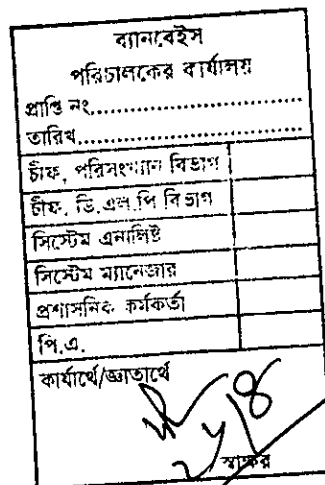 ব্যানবেইস
পরিচালকের কার্যালয়
প্রাপ্তি নং..............................
তারিখ..................................
চীফ, পরিসংখ্যান বিভাগ
চীফ, ডি.এল.পি বিভাগ
সিস্টেম এনালিষ্ট
সিস্টেম ম্যানেজার
প্রশাসনিক কর্মকর্তা
পি.এ.
কার্যার্থে/জ্ঞাতার্থে
স্বাক্ষর